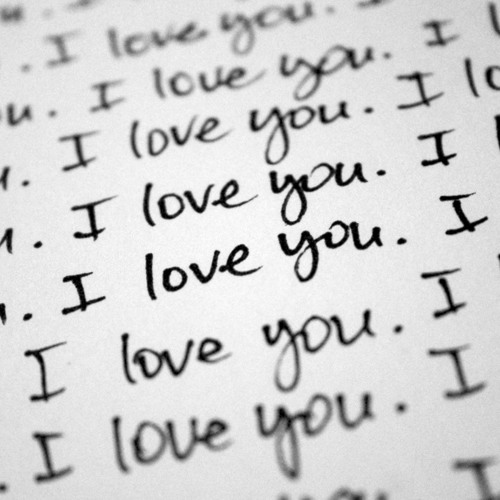 . I love you.
u. I love you. I
. I love you. I lo
. I love you. I
. I love you. I
I love you. I
. I love you. I
you. I